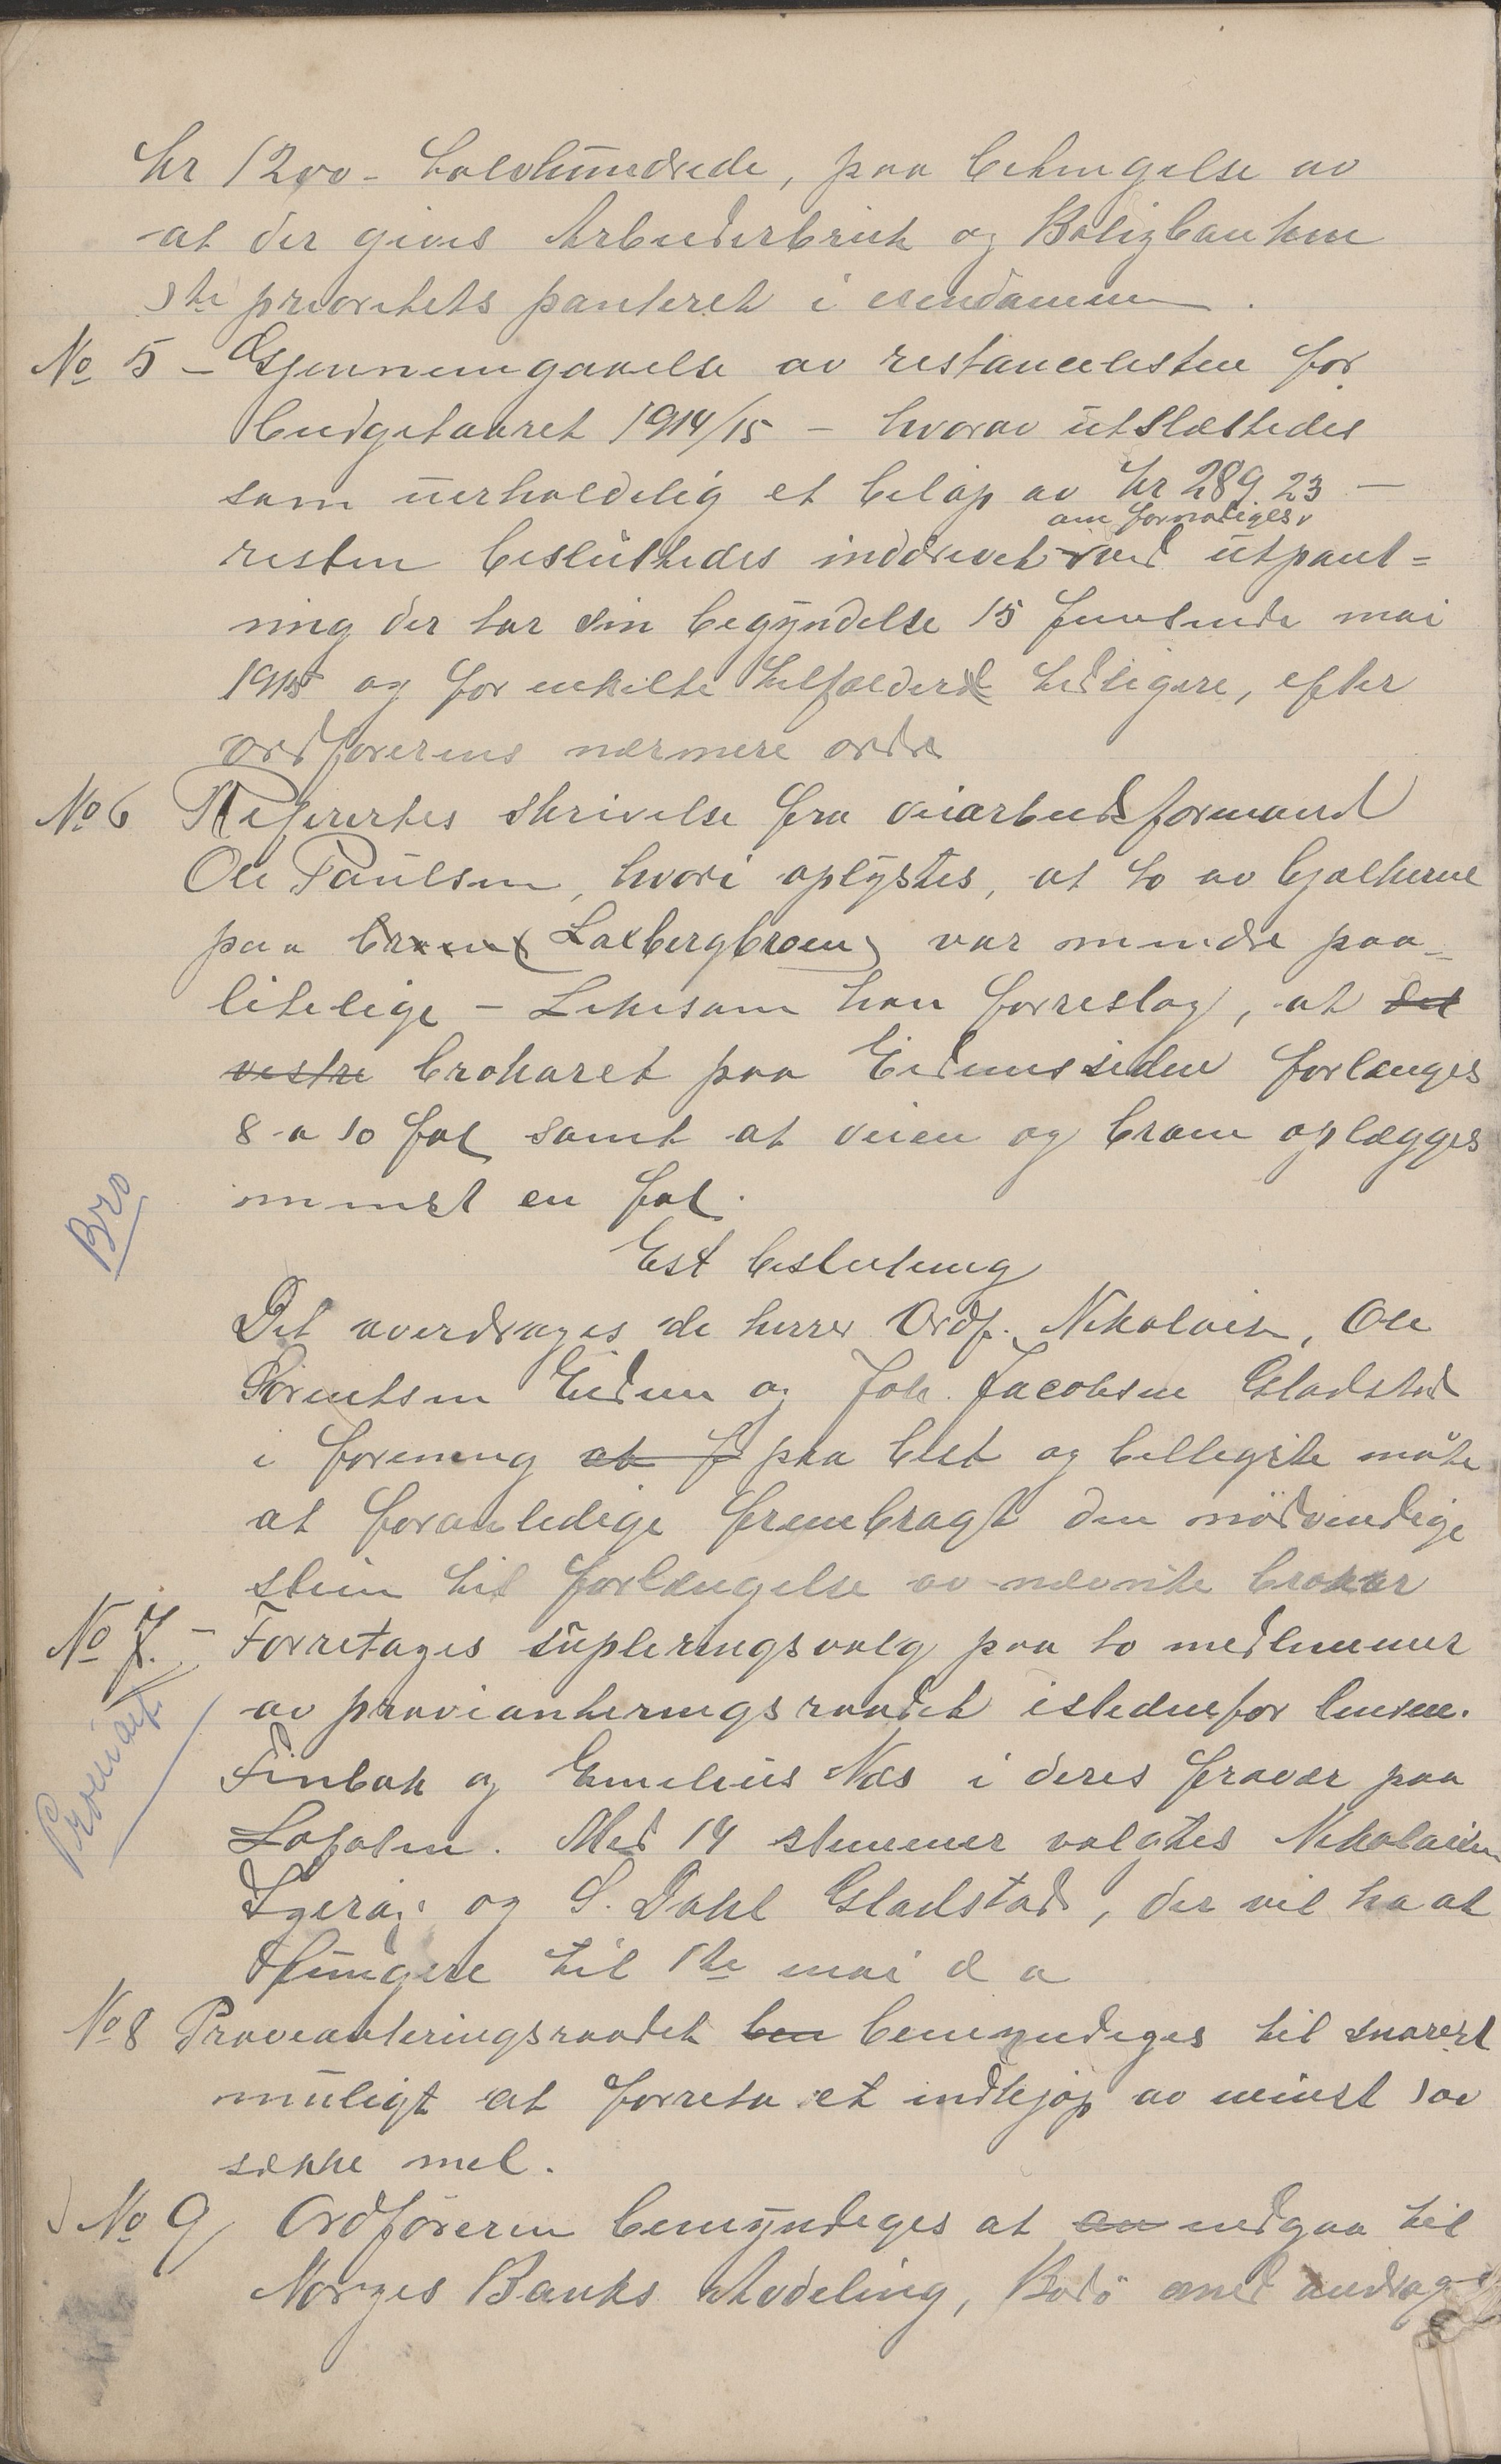 kr 1200 - tolvhundrede, paa betingelse av
at der gives Arbeiderbruk og Boligbanken
1ste prioritets panteret i eiendommen.
No 5 - Gjennemgaaelse av restancelisten for
budgetaaret 1914/15 - hvorav utslettedes
som uerholdelig et beløp av kr 289.23 -
om fornødiges
resten besluttedes inddrevet ved utpant=
ning der tar sin begyndelse 15 femtende mai
1915 og for enkelte tilfælder tidligere, efter
ordførerens nærmere ordre
No 6 Refirertes skrivelse fra veiarbeidsformand
Ole Paulsen, hvori oplystes, at to av bjælkerne
paa broen (Laxbergbroen) var mindre paa=
litelige - Likesom han forreslog, at det
vestre brokaret paa Eidemssiden forlænges
8 a 10 fot samt at veien og broen oplægges
minst en fot.
Bro
Est beslutning
Det overdrages de herrer Ordf. Nikolaisen, Ole
Sørentsen Eidem og Joh. Jacobsen Gladstad
i forening at f paa best og billigste måte
at foranledige frembragt den nödvendige
stein til forlængelse av nævnte brokar
No 7. - Forretages supleringsvalg paa to medlemmer
av provianteringsraadet istedenfor lensm.
Proviant
Finbak og Emelius Næs i deres fravær paa
Lofoten. Med 14 stemmer valgtes Nikolaisen
og S. Dahl Gladstad, der vil ha at
fungere til 1ste mai d a
No 8 Provianteringsraadet bem bemyndiges til snarest
muligt at forreta et indkjøp av minst 100
sække mel.
No 9 Ordföreren bemyndiges at an indgaa til
Norges Banks Avdeling, Bodö med andrage